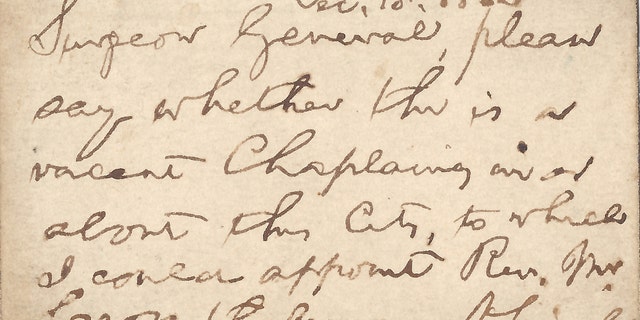 Surgeon General, please
say whether the is a
vacant Chaplaincy in or
about this City, to which
I could appoint Rev. Mr